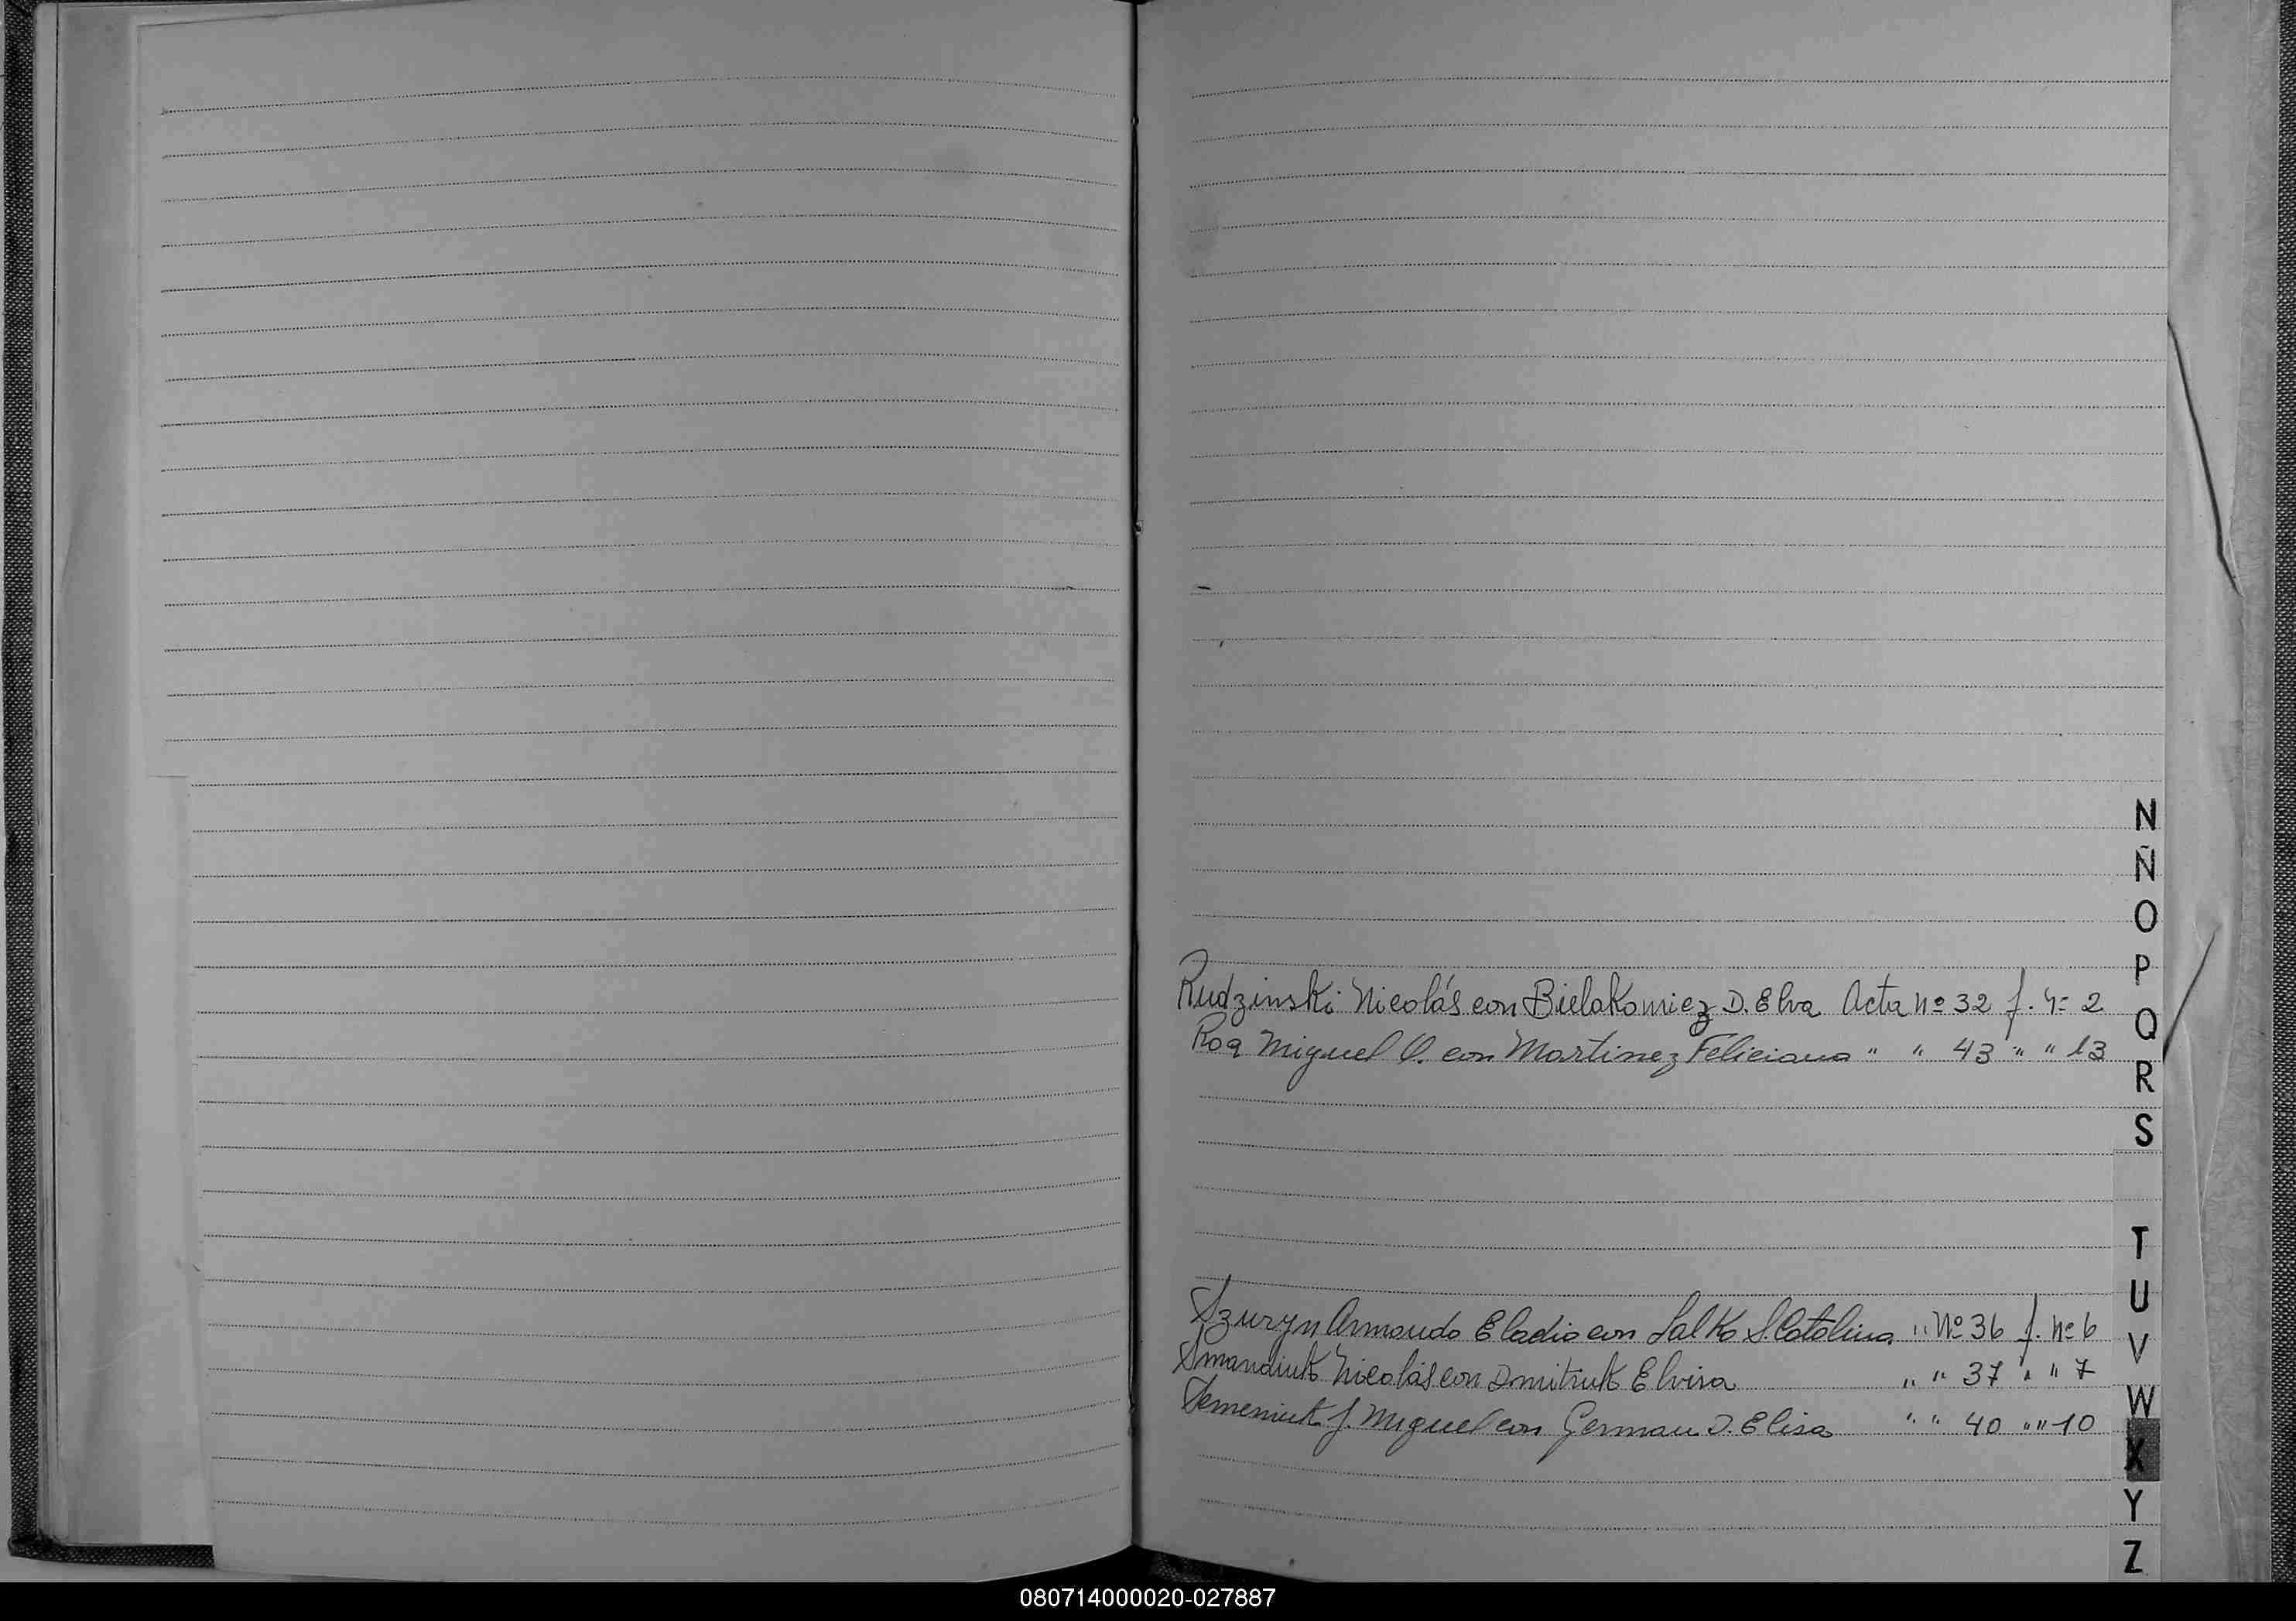 N
Ñ
O
P
Rudzinski Nicolás con Bielakomiez D. Elva Acta nº 32 f. nº 2
Q
Roa Miguel O. con Martinez Feliciana " " 43 " " 13
R
S
T
U
Szuryn Armando Eladio con Salko S. Catalina " Nº 36 f. nº 6
V
Smandiuk Nicolás con Dmitruk Elvira " " 37 " " 7
W
Semeniuk J. Miguel con German D. Elisa " " 40 " " 10
X
Y
Z
080714000020-027887